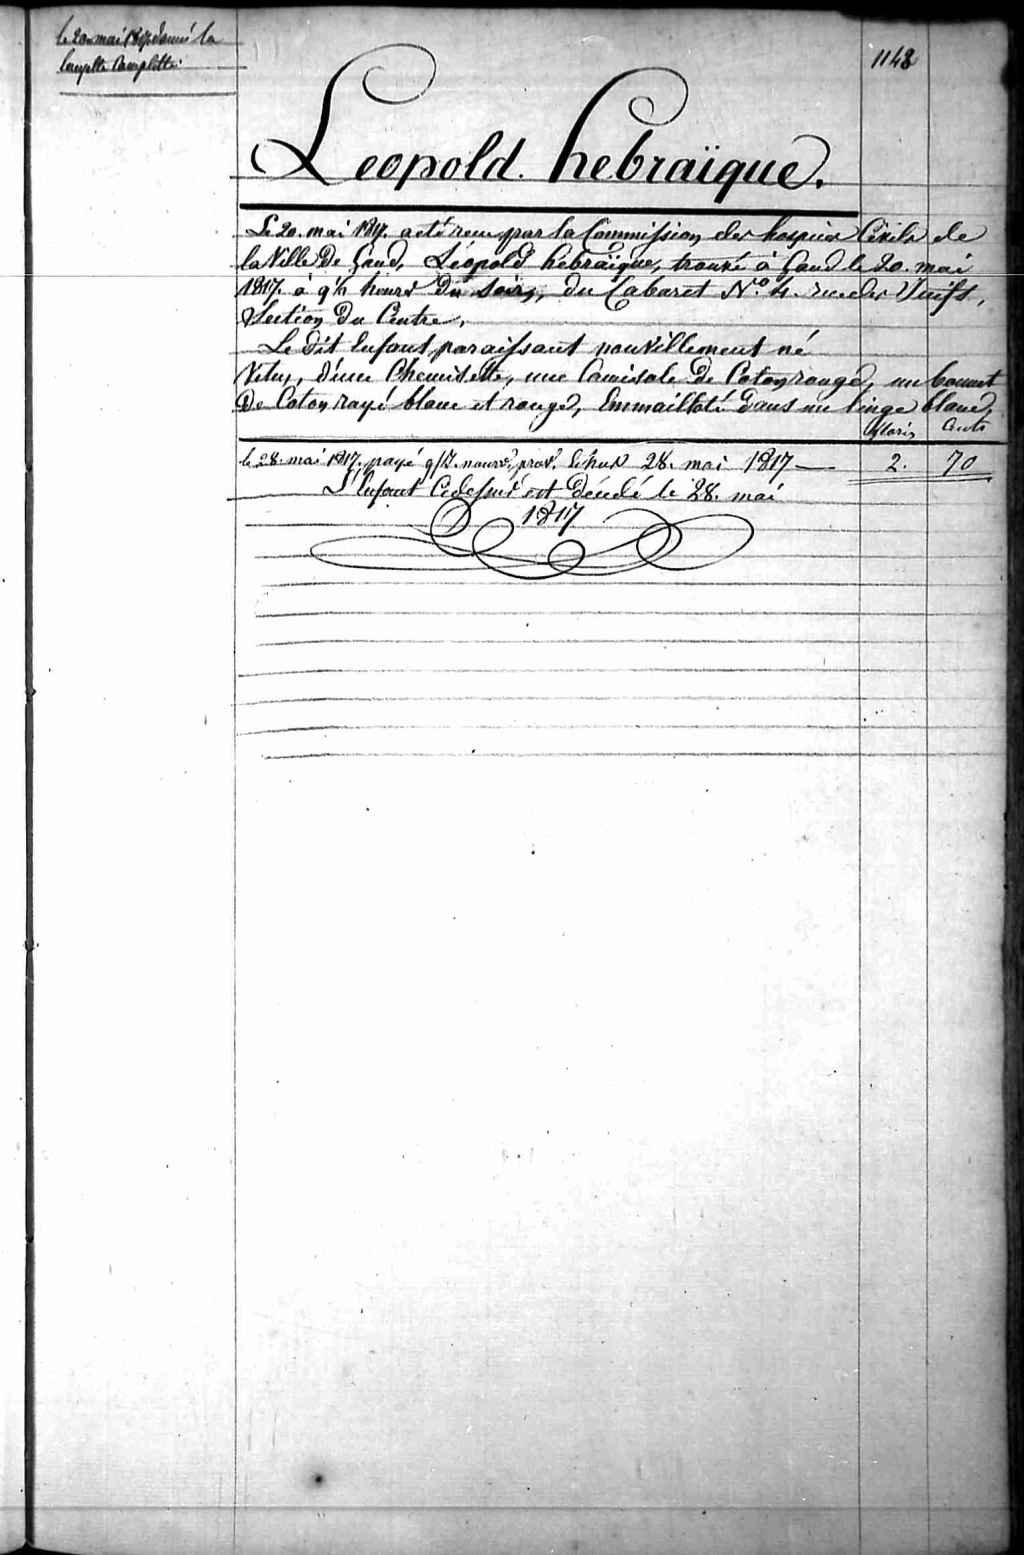 le 20 mai 1817 donné la
layette Complette
1148
Leopold. hebraïque.
Le 20. mai 1817. a eté recu par la Commission des hospices Civils de
la Ville De Gand, Léopold hébraïque, trouvé à Gand le 20. mai
1817. à 9½ heures Du Soir, du Cabaret N.º 4. rue des Juifs,
Section Du Centre,
Le Dit Enfant, paraissant nouvellement né
Vetu, d'une Chemisette, une Camisole De Coton rouge, un bonnet
De Coton rayé blanc et rouge, Emmailloté dans un linge blanc,
florins Cents
le 28. mai 1817. payé nourr. prov. Echus 28. mai 1817 — 2. 70
L'Enfant Cidessus est Décédé le 28. mai
1817